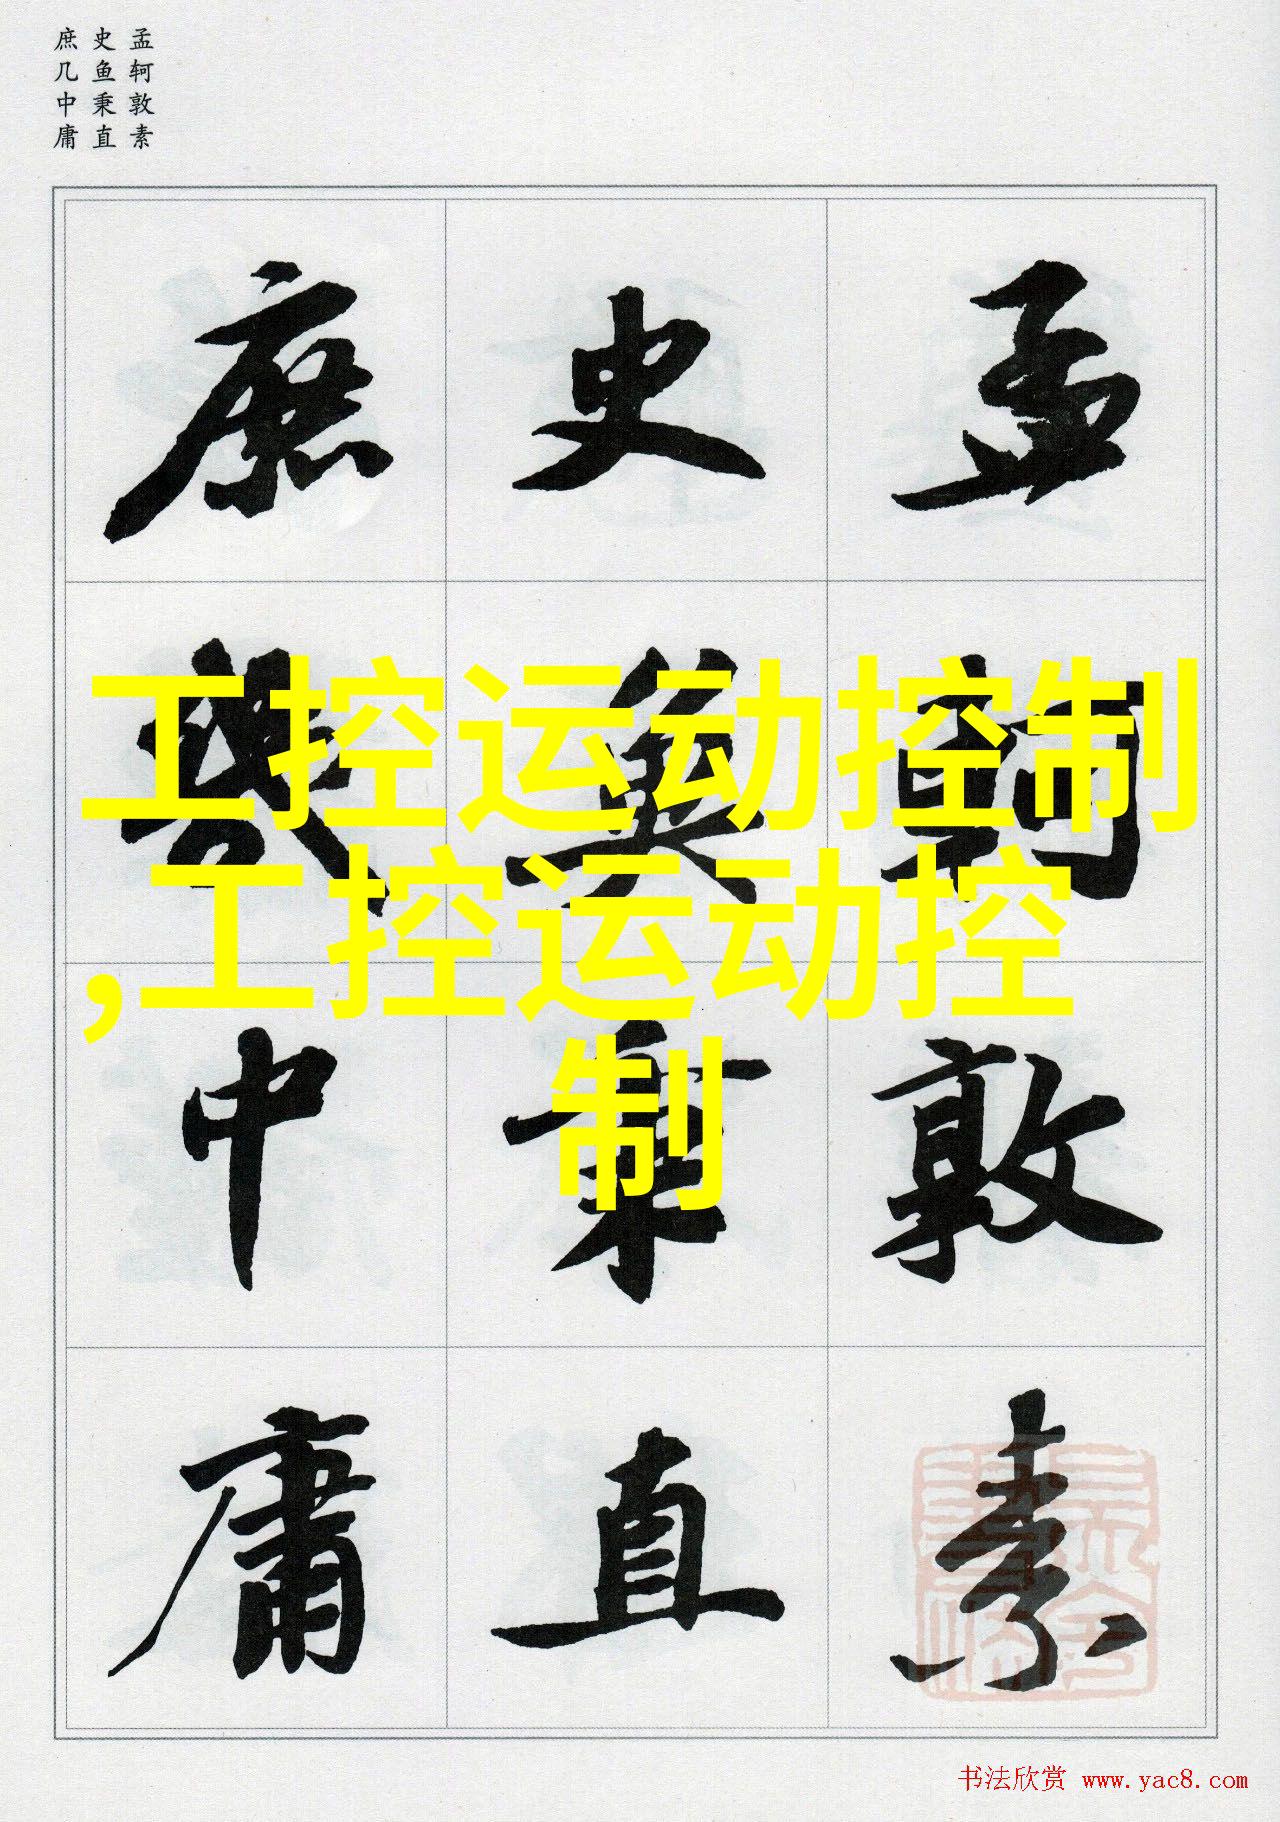 孟轲敦素
史鱼秉直
庶几中庸
孟軻敦素
史魚秉直
庶幾中庸
工控运动控制
,工控运动控
制
书法欣赏 www.yac8.com